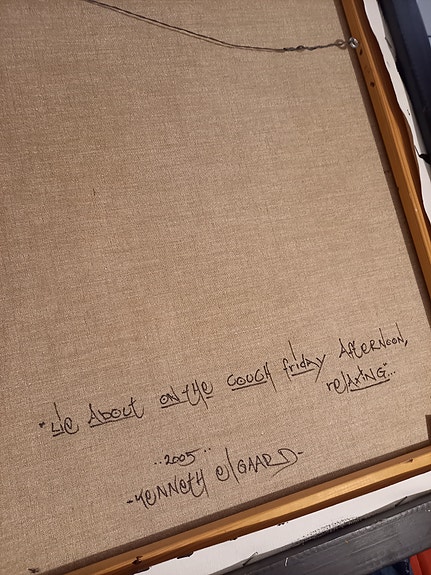 "Lie About on the couch friday Afternoon,
relaxing"...
..2005..
-Kenneth elgaard-